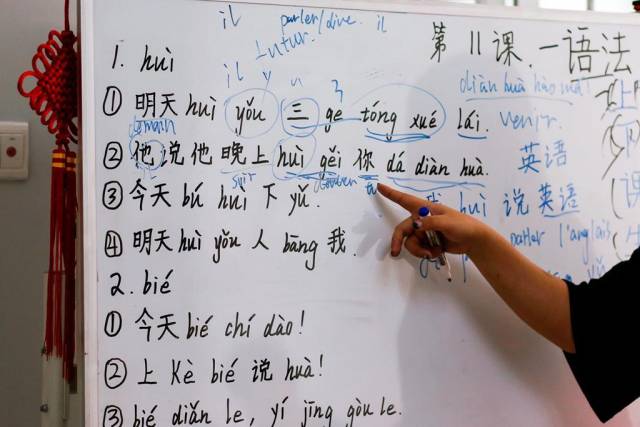 il parler/dire. il
futur.
第 11 课. 一 语法
1. huì
il y
diàn huà hào mǎ
① 明天 huì yǒu 三 ge tóng xué lái. venir.
demain
② 他 说 他 晚上 huì gěi 你 dá diàn huà.
英语
il soir tu
③ 今天 bú huì 下 yǔ.
huì 说 英语
④ 明天 huì yǒu 人 bāng 我.
parler l'anglais
2. bié
① 今天 bié chí dào!
② 上 Kè bié 说 huà!
③ bié diǎn le, yí jīng gòu le.